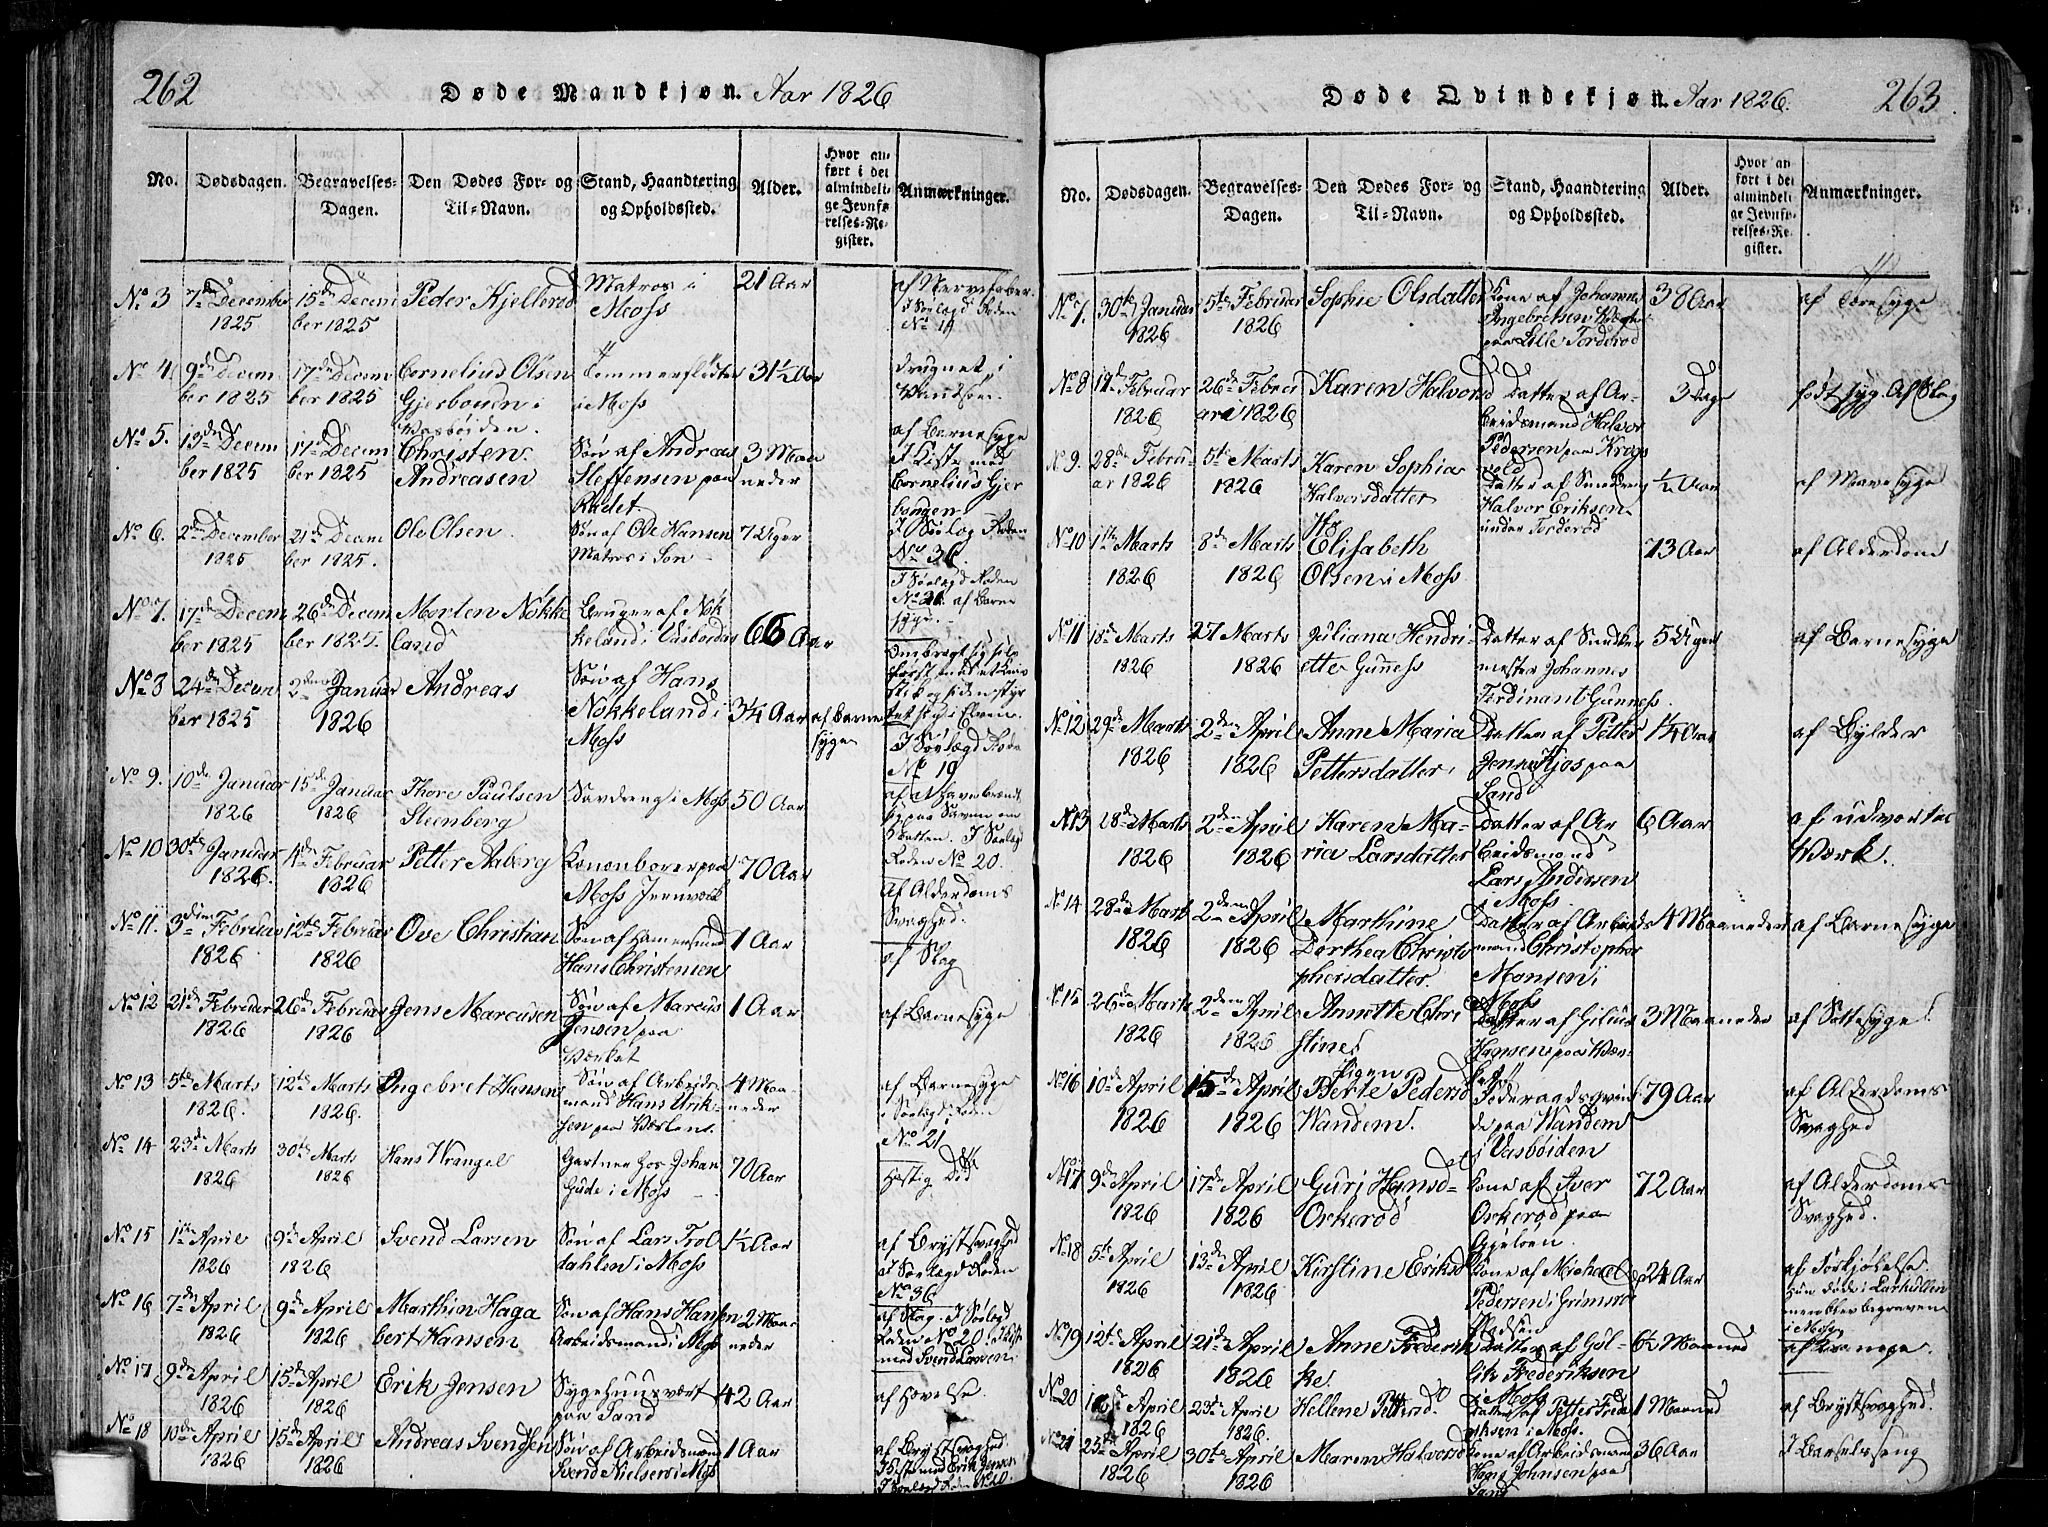 262
Døde Mandkjøn. Aar 1826
No.
Dødsdagen.
Begravelses-Dagen.
Den Dødes For- og Til-Navn.
Stand, Haandtering og Opholdssted.
Alder.
Hvor anført i det almindelige Jevnførelses-Register.
Anmærkninger.
No 3 7de December 1825 15de December 1825 Peder Kjellerød Matros i Moss 21 Aar
No 4 9de December 1825 17de December 1825 Cornelius Olsen Tømmerfløder i Moss 31½ Aar drugnet i
No 5. 13de December 1825 17de December 1825 Christen Andreasen Søn af Andreas Steffensen paa 3 Maaneder af Barnesyge I Kiste med Cornelius
No 6. 2den December 1825 21de December 1825. Ole Olsen. Søn af Ole Hansen Matros i Son 7 Uger No 36
No 7. 17de December 1825 26de December 1825 Morten Nökkeland Bruger af Nökkeland i Vasbøiden 66 Aar
No 8 24de December 1825 2den Januar 1826 Andreas Søn af Hans Nökkeland i Moss 3¼ Aar af Barnesyge No 19
No 9. 10de Januar 1826 15de Januar 1826 Thore Paulsen Steenberg Savdreng i Moss 50 Aar No 20.
No 10 30te Januar 1826. 4de Februar 1826 Petter Aaberg Kanonborer paa Moss Jernværk 70 Aar af Alderdoms Svaghed.
No 11. 3die Februar 1826 12te Februar 1826 Ove Christian Søn af Hans Christensen 1 Aar af Slag
No 12 21de Februar 1826 26de Februar 1826 Jens Marcusen Søn af Marcus Jensen paa Værket 1 Aar af Barnesyge
No 13 5te Marts 1826. 12te Marts 1826. Ingebret Hansen Søn af Arbeidsmand Hans 4 Maaneder af Barnesyge No 21
No 14 23de Marts 1826 30te Marts 1826 Hans Wrangel Gartner hos Johan Gude i Moss 70 Aar Hastig Død
No 15 1ste April 1826 9de April 1826 Svend Larsen Søn af Lars Troldahlen i Moss ½ Aar af Brystsvaghed No 36
No 16 7de April 1826 9de April 1826 Marthin Hagabert Hansen Søn af Hans Hansen Arbeidsmand i Moss 2 Maaneder af Slag No 20. med Svend Larsen
No 17 9de April 1826 15de April 1826 Erik Jensen Sygehuusvært paa Sand 42 Aar af Hovelse.
No 18 10de April 1826 15de April 1826 Andreas Svendsen Søn af Arbeidsmand Svend Nielsen i Moss 1 Aar af Brystsvaghed
263
Døde Qvindekjøn. Aar 1826.
No.
Dødsdagen.
Begravelses-Dagen.
Den Dødes For- og Til-Navn.
Stand, Haandtering og Opholdssted.
Alder.
Hvor anført i det almindelige Jevnførelses-Register.
Anmærkninger.
No 7. 30te Januar 1826 5te Februar 1826 Sophie Olsdatter Kone af Johannes Ingebretsen paa Lille Torderød 38 Aar af Tæresyge
No 8 19de Februar 1826 26de Februar 1826 Karen Halvorsd Datter af Arbeidsmand Halvor Pedersen paa Krogsvold 3 Dage født syg. Af Slag
No 9. 28de Februar 1826 5te Marts 1826 Karen Sophia Halvorsdatter Datter af Halvor Eriksen under Torderød ½ Aar af Mavesyge
No 10 1ste Marts 1826 8de Marts 1826 Elisabeth Olsen i Moss 73 Aar af Alderdom
No 11 18de Marts 1826 27 Marts 1826 Juliana Hendriette Guness Datter af Johannes Ferdinant Gunness. 5 Uger af Barnesyge
No 12 29de Marts 1826 2den April 1826 Anne Maria Pettersdatter. Datter af Petter paa Sand 1¼ Aar af Bylder
No 13 28de Marts 1826 2den April 1826 Karen Maria Larsdatter Datter af Arbeidsmand Lars Andersen i Moss. 6 Aar af udvortes Værk.
No 14 28de Marts 1826 2den April 1826 Marthine Dorthea Christophersdatter. Datter af Arbeidsmand Christopher Monsen i Moss 4 Maaneder af Barnesyge
No 15 26de Marts 1826 2den April 1826 Annette Christines Datter af Gilius Hansen paa Værket 3 Maaneder af Sottesyge
No 16 10de April 1826 15de April 1826 Pigen Berte Pedersd Wandem. Føderaadsqvinde paa Wandem i Vasbøiden 79 Aar af Alderdoms Svaghed
No 17 9de April 1826 17de April 1826 Guri Hansd Orkerød Kone af Iver Orkerød paa Gjeløen. 72 Aar af Alderdoms Svaghed.
No 18 5te April 1826 13de April 1826 Kirstine Eriksd Kone af Michael Pedersen i Grimsrød Pladsen 24 Aar af Forkjølelse. Hun døde i Larkullen men blev begraven i Moss
No 19 12te April 1826 21de April 1826 Anne Frederikkes Datter af Gulik Frederiksen i Moss 6½ Maaned
No 20 April 1826 23de April 1826. Hellene Pettersd. Datter af Petter Frederiksen i Moss. 1 Maaned af Brystsvaghed.
No 21 23de April 1826 30te April 1826 Maren Halvorsd Kone af Arbeidsmand Hans Johnsen paa Sand 36 Aar I Barselseng